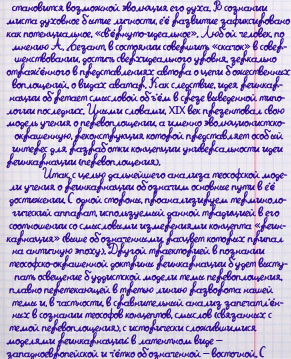 становится возможной эволюция его духа. В сознании
мистa духовное бытие личности, её развитие зафиксировано
как потенциальное, «свёрнуто-идеальное». Любой человек, по
мнению А. Безант, в состоянии совершить «скачок» в совер-
шенствовании, достичь сверхидеального уровня, зеркально
отражённого в представлениях автора о цепи божественных
воплощений, о видах аватар. Как следствие, идея реинкар-
нации обретает смысловой объём в срезе выведенной типо-
логии последних. Иными словами, XIX век презентовал свою
модель учения о перевоплощении, а именно эволюционистско-
окрашенную, реконструкция которой представляет особый
интерес для разработки концепции универсальности идеи
реинкарнации (перевоплощения).
Итак, целью дальнейшего анализа теософской моде-
ли учения о реинкарнации обозначим основные пути в её
достижении. С одной стороны, проанализируем терминоло-
гический аппарат, используемый данной традицией в его
соотношении со смысловыми измерениями концепта «реин-
карнация» (выше обозначенными, расцвет которых припал
на античную эпоху). Другой траекторией в познании
теософско-окрашенной доктрины реинкарнации будет высту-
пать освещение буддистской модели темы перевоплощения,
плавно перетекающей в третью линию разворота нашей
темы и, в частности, в сравнительный анализ запечатлён-
ных в сознании теософов концептов, смыслов (связанных с
темой перевоплощения), с исторически сложившимися
моделями реинкарнации в латентном виде –
западноевропейской и чётко обозначенной – восточной. С